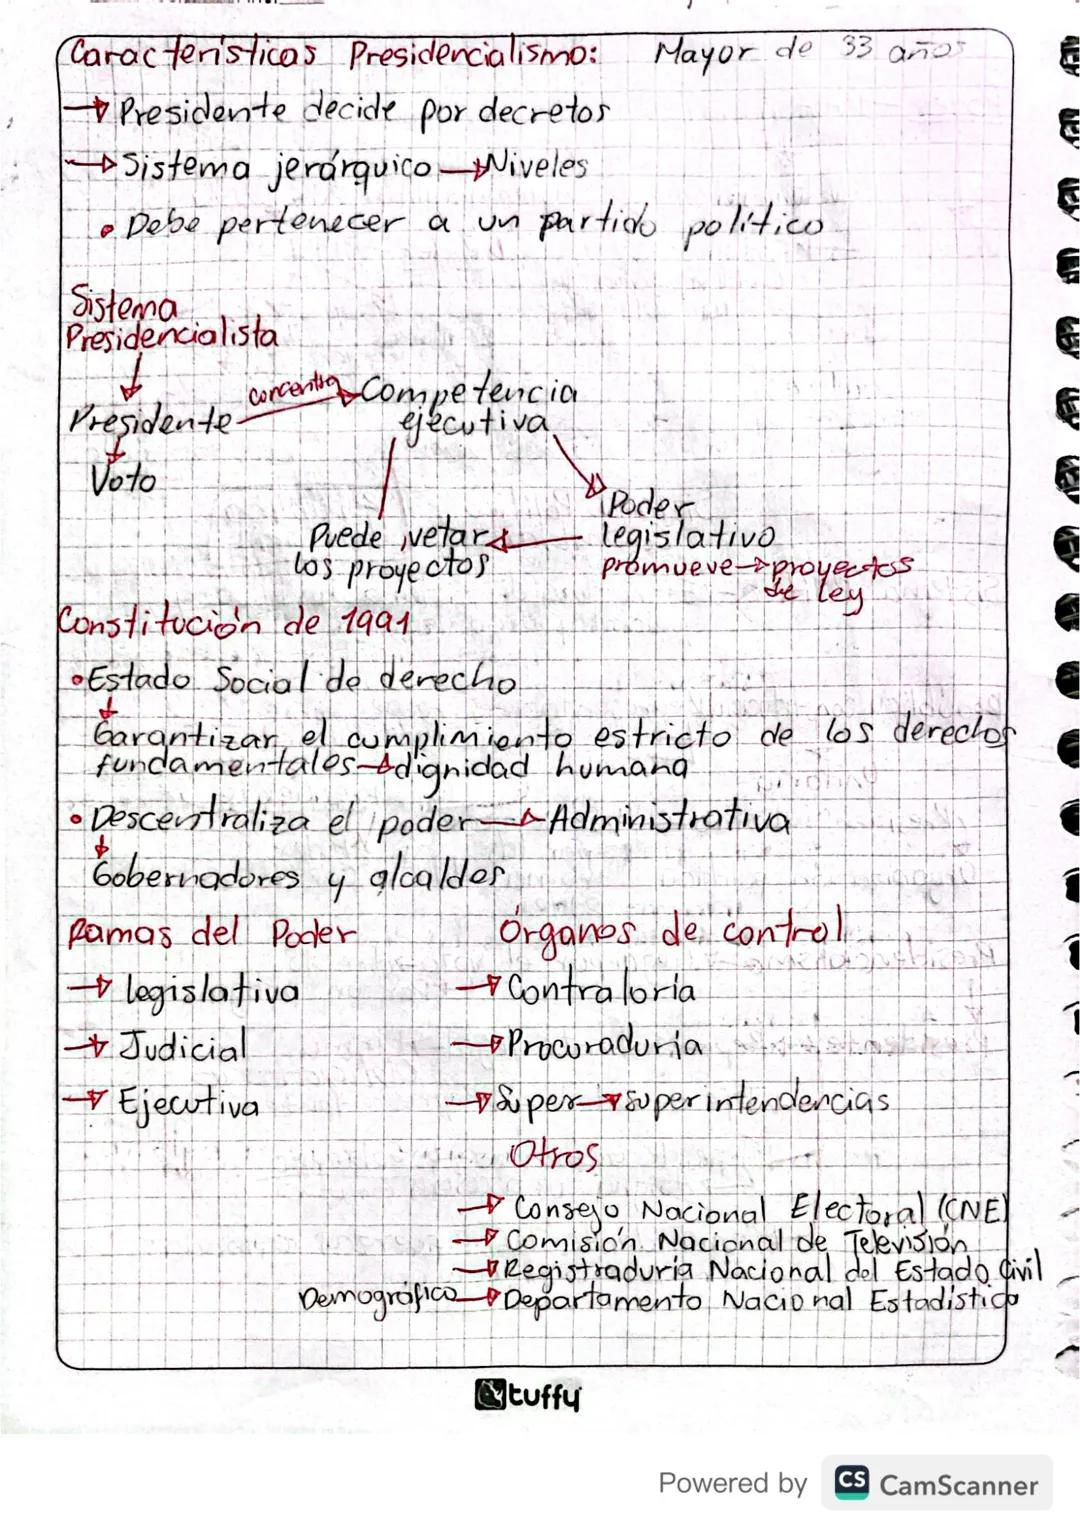 Características Presidencialismo: Mayor de 33 años
→ Presidente decide por decretos
→ Sistema jerárquico → Niveles
• Debe pertenecer a un partido político
Sistema
Presidencialista
Presidente concentra Competencia
ejecutiva
Voto
Poder
legislativo
promueve → proyectos
de ley
Puede vetar
los proyectos
Constitución de 1991
• Estado Social de derecho
Garantizar el cumplimiento estricto de los derechos
fundamentales → dignidad humana
• Descentraliza el poder → Administrativa
Gobernadores y alcaldes
Ramas del Poder
→ legislativa
→ Judicial
→ Ejecutiva
Órganos de control
→ Contraloría
→ Procuraduría
→ Super → superintendencias
Otros
→ Consejo Nacional Electoral (CNE)
→ Comisión Nacional de Televisión
→ Registraduría Nacional del Estado Civil
Demográfico → Departamento Nacional Estadístico
tuffy
Powered by CS CamScanner